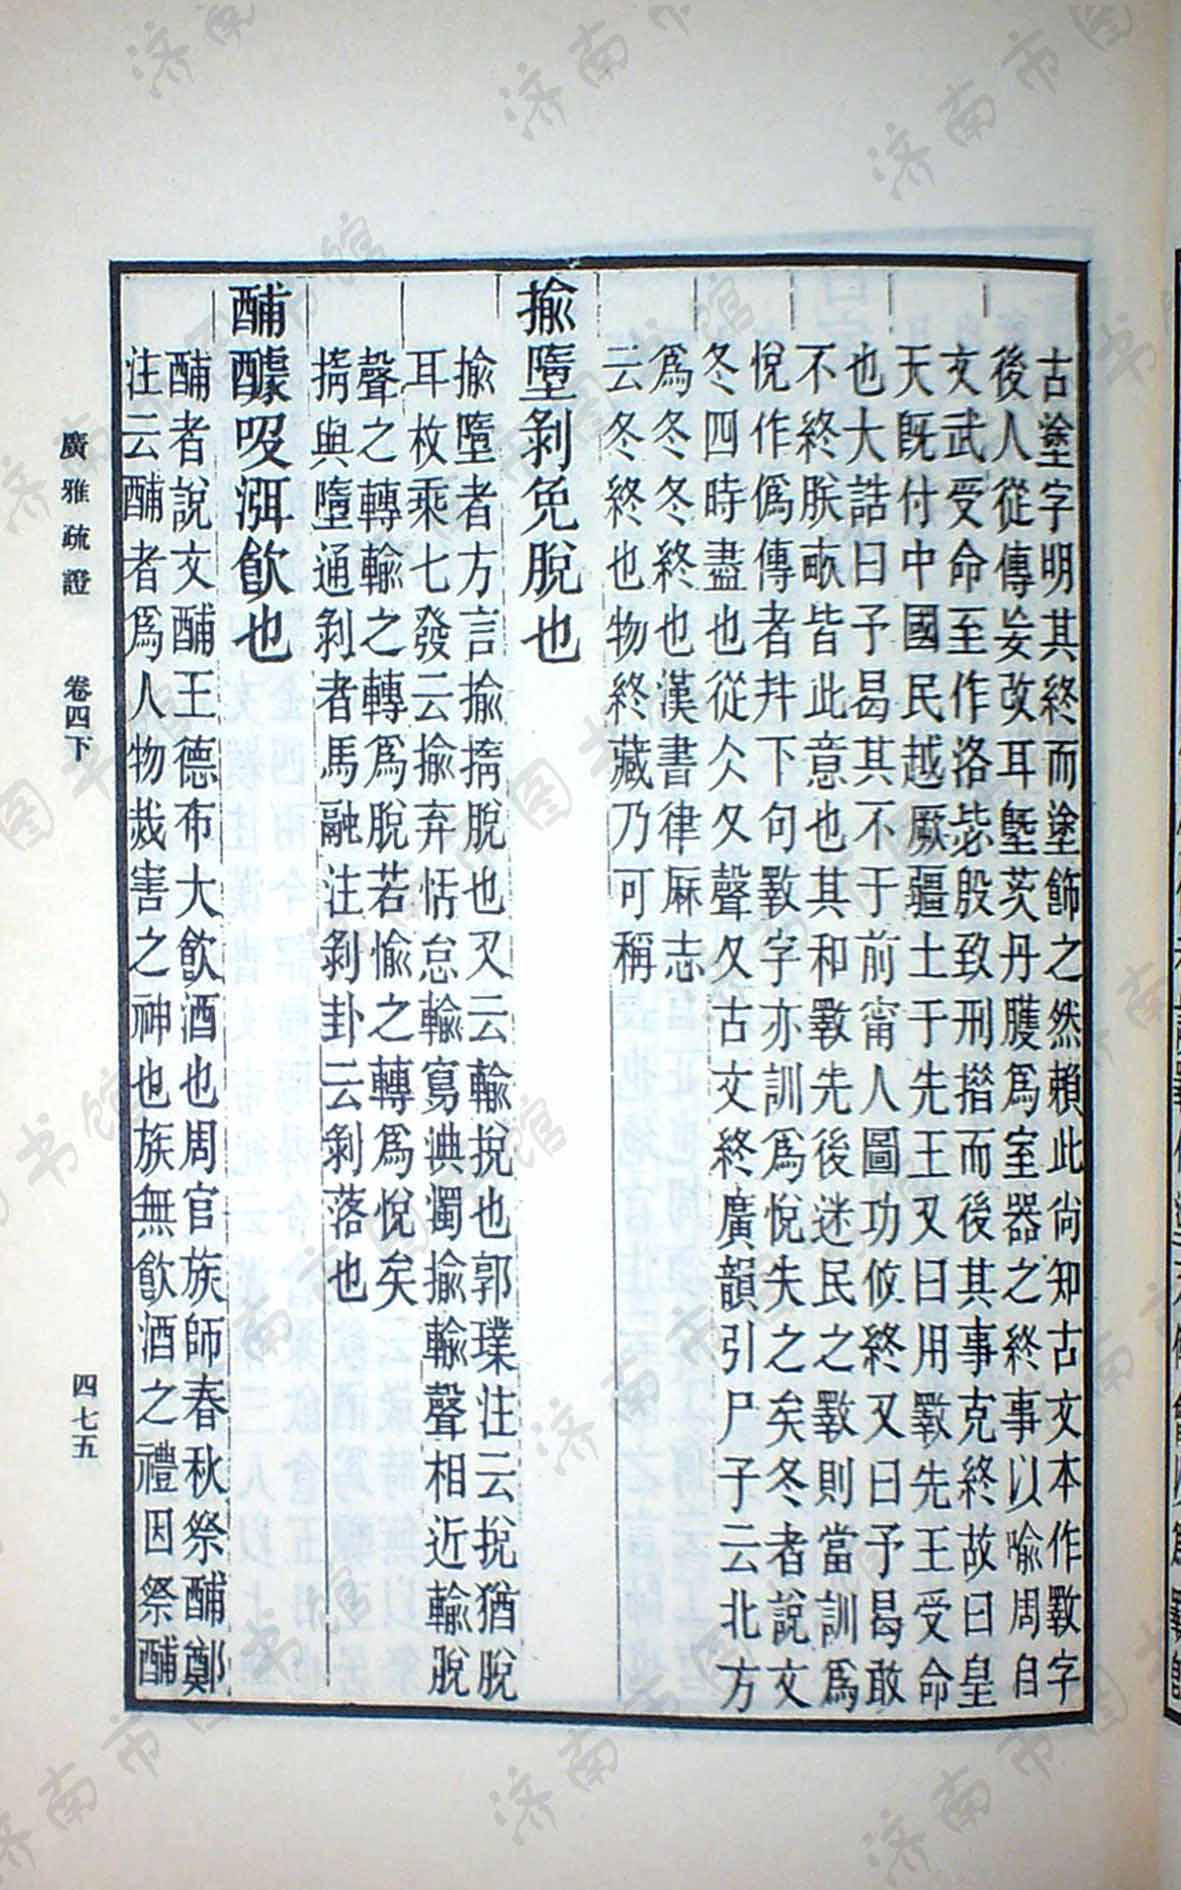 古塗字明其終而塗飾之然賴此尚知古文本作斁字
後人從傳妄改耳塈茨丹雘爲室器之終事以喻周自
文武受命至作洛毖殷致刑措而後其事克終故曰皇
天既付中國民越厥疆土于先王又曰用斁先王受命
也大誥曰予曷其不于前甯人圖功攸終又曰予曷敢
不終朕畝皆此意也其和斁先後迷民之斁則當訓爲
悅作僞傳者幷下句斁字亦訓爲悅失之矣冬者說文
冬四時盡也從仌夂聲夂古文終廣韻引尸子云北方
爲冬冬終也漢書律厤志
云冬終也物終藏乃可稱
揄墮剝免脫也
揄墮者方言揄㨊脫也又云輸挩也郭璞注云挩猶脫
耳枚乘七發云揄弃恬怠輸寫淟濁揄輸聲相近輸脫
聲之轉輸之轉爲脫若愉之轉爲悅矣
㨊與墮通剝者馬融注剝卦云剝落也
酺醵吸洱飲也
酺者說文酺王德布大飲酒也周官族師春秋祭酺鄭
注云酺者爲人物烖害之神也族無飲酒之禮因祭酺
廣雅疏證 卷四下 四七五
济南市图书馆